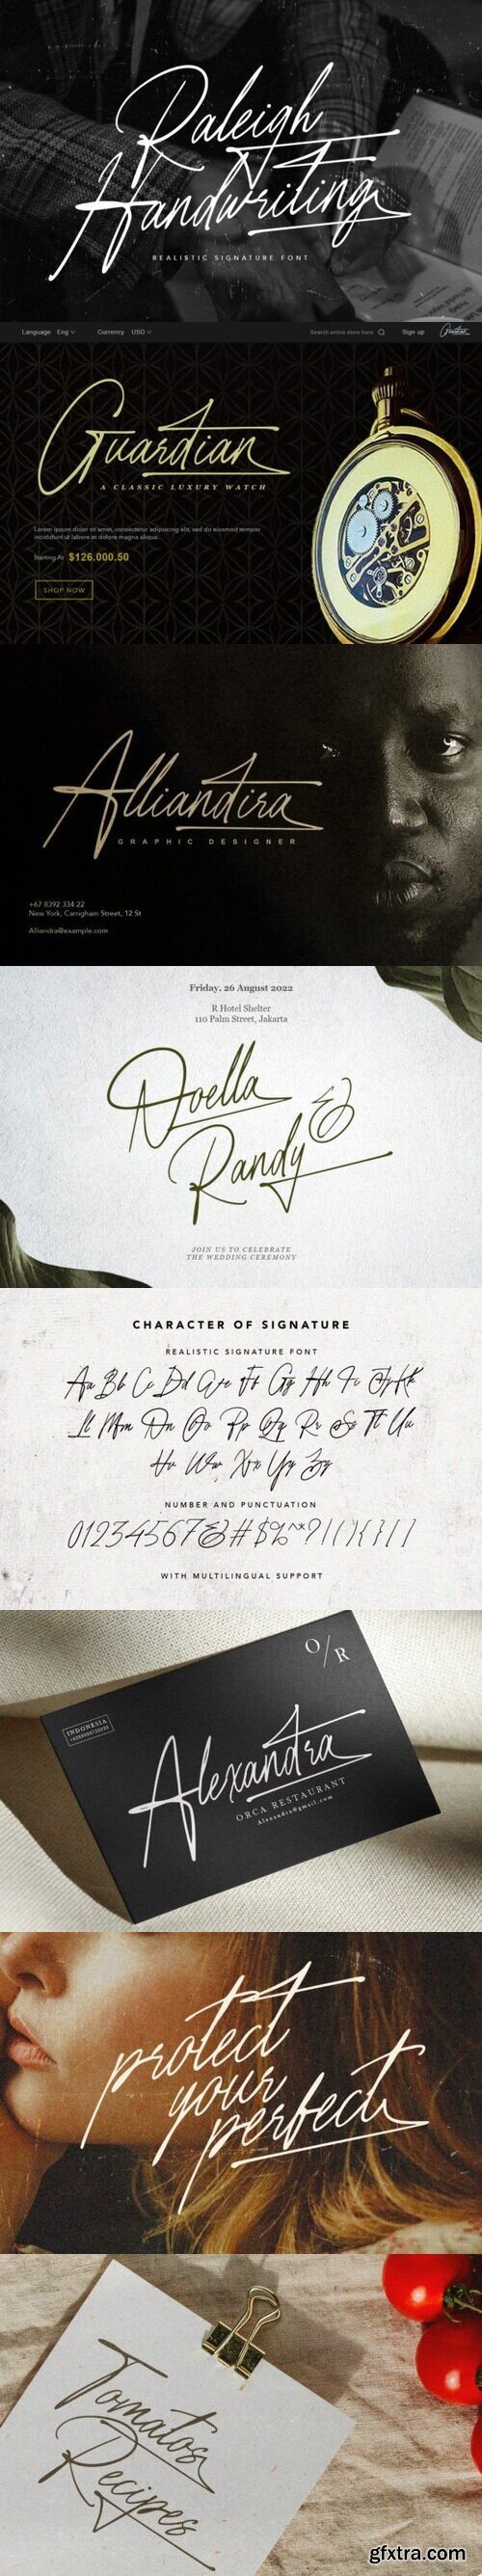 Raleigh
Handwriting
REALISTIC SIGNATURE FONT
Language Eng Currency USD Search entire store here Sign up Guardian
Guardian
A CLASSIC LUXURY WATCH
Lorem ipsum dolor sit amet, consectetur adipiscing elit, sed do eiusmod tempor
incididunt ut labore et dolore magna aliqua.
Starting At $126.000.50
SHOP NOW
Alliandira
GRAPHIC DESIGNER
+67 8392 334 22
New York, Carrigham Street, 12 St
Alliandra@example.com
Friday, 26 August 2022
R Hotel Shelter
110 Palm Street, Jakarta
Noella
&
Randy
JOIN US TO CELEBRATE
THE WEDDING CEREMONY
CHARACTER OF SIGNATURE
REALISTIC SIGNATURE FONT
Aa Bb Cc Dd Ee Ff Gg Hh Ii Jj Kk
Ll Mm Nn Oo Pp Qq Rr Ss Tt Uu
Vv Ww Xx Yy Zz
NUMBER AND PUNCTUATION
01234567&#$%^*?!(){}[]
WITH MULTILINGUAL SUPPORT
O/R
INDONESIA
Alexandra
ORCA RESTAURANT
Alexandra@gmail.com
protect
your
perfect
Tomatos
Recipes
gfxtra.com